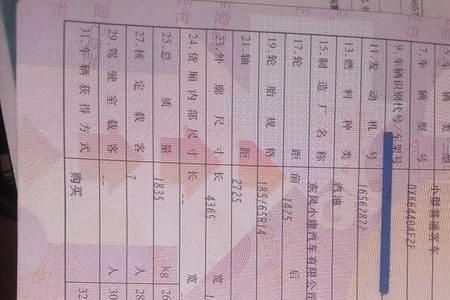 5.车辆类型 小型普通客车
7.车辆型号 DXK6440AF2F
9.车辆识别代号/车架号
11.发动机号 16562872
13.燃料种类 汽油
15.制造厂名称 东风小康汽车有限公司
17.轮距 前 1425 后
19.轮胎规格 185/65R14
21.轴距 2725
23.外廓尺寸 长 4365 宽
24.货厢内部尺寸 长 -- 宽
25.总质量 1835 kg 26
27.核定载客 7 人 28
29.驾驶室载客 -- 人 30
31.车辆获得方式 购买 32